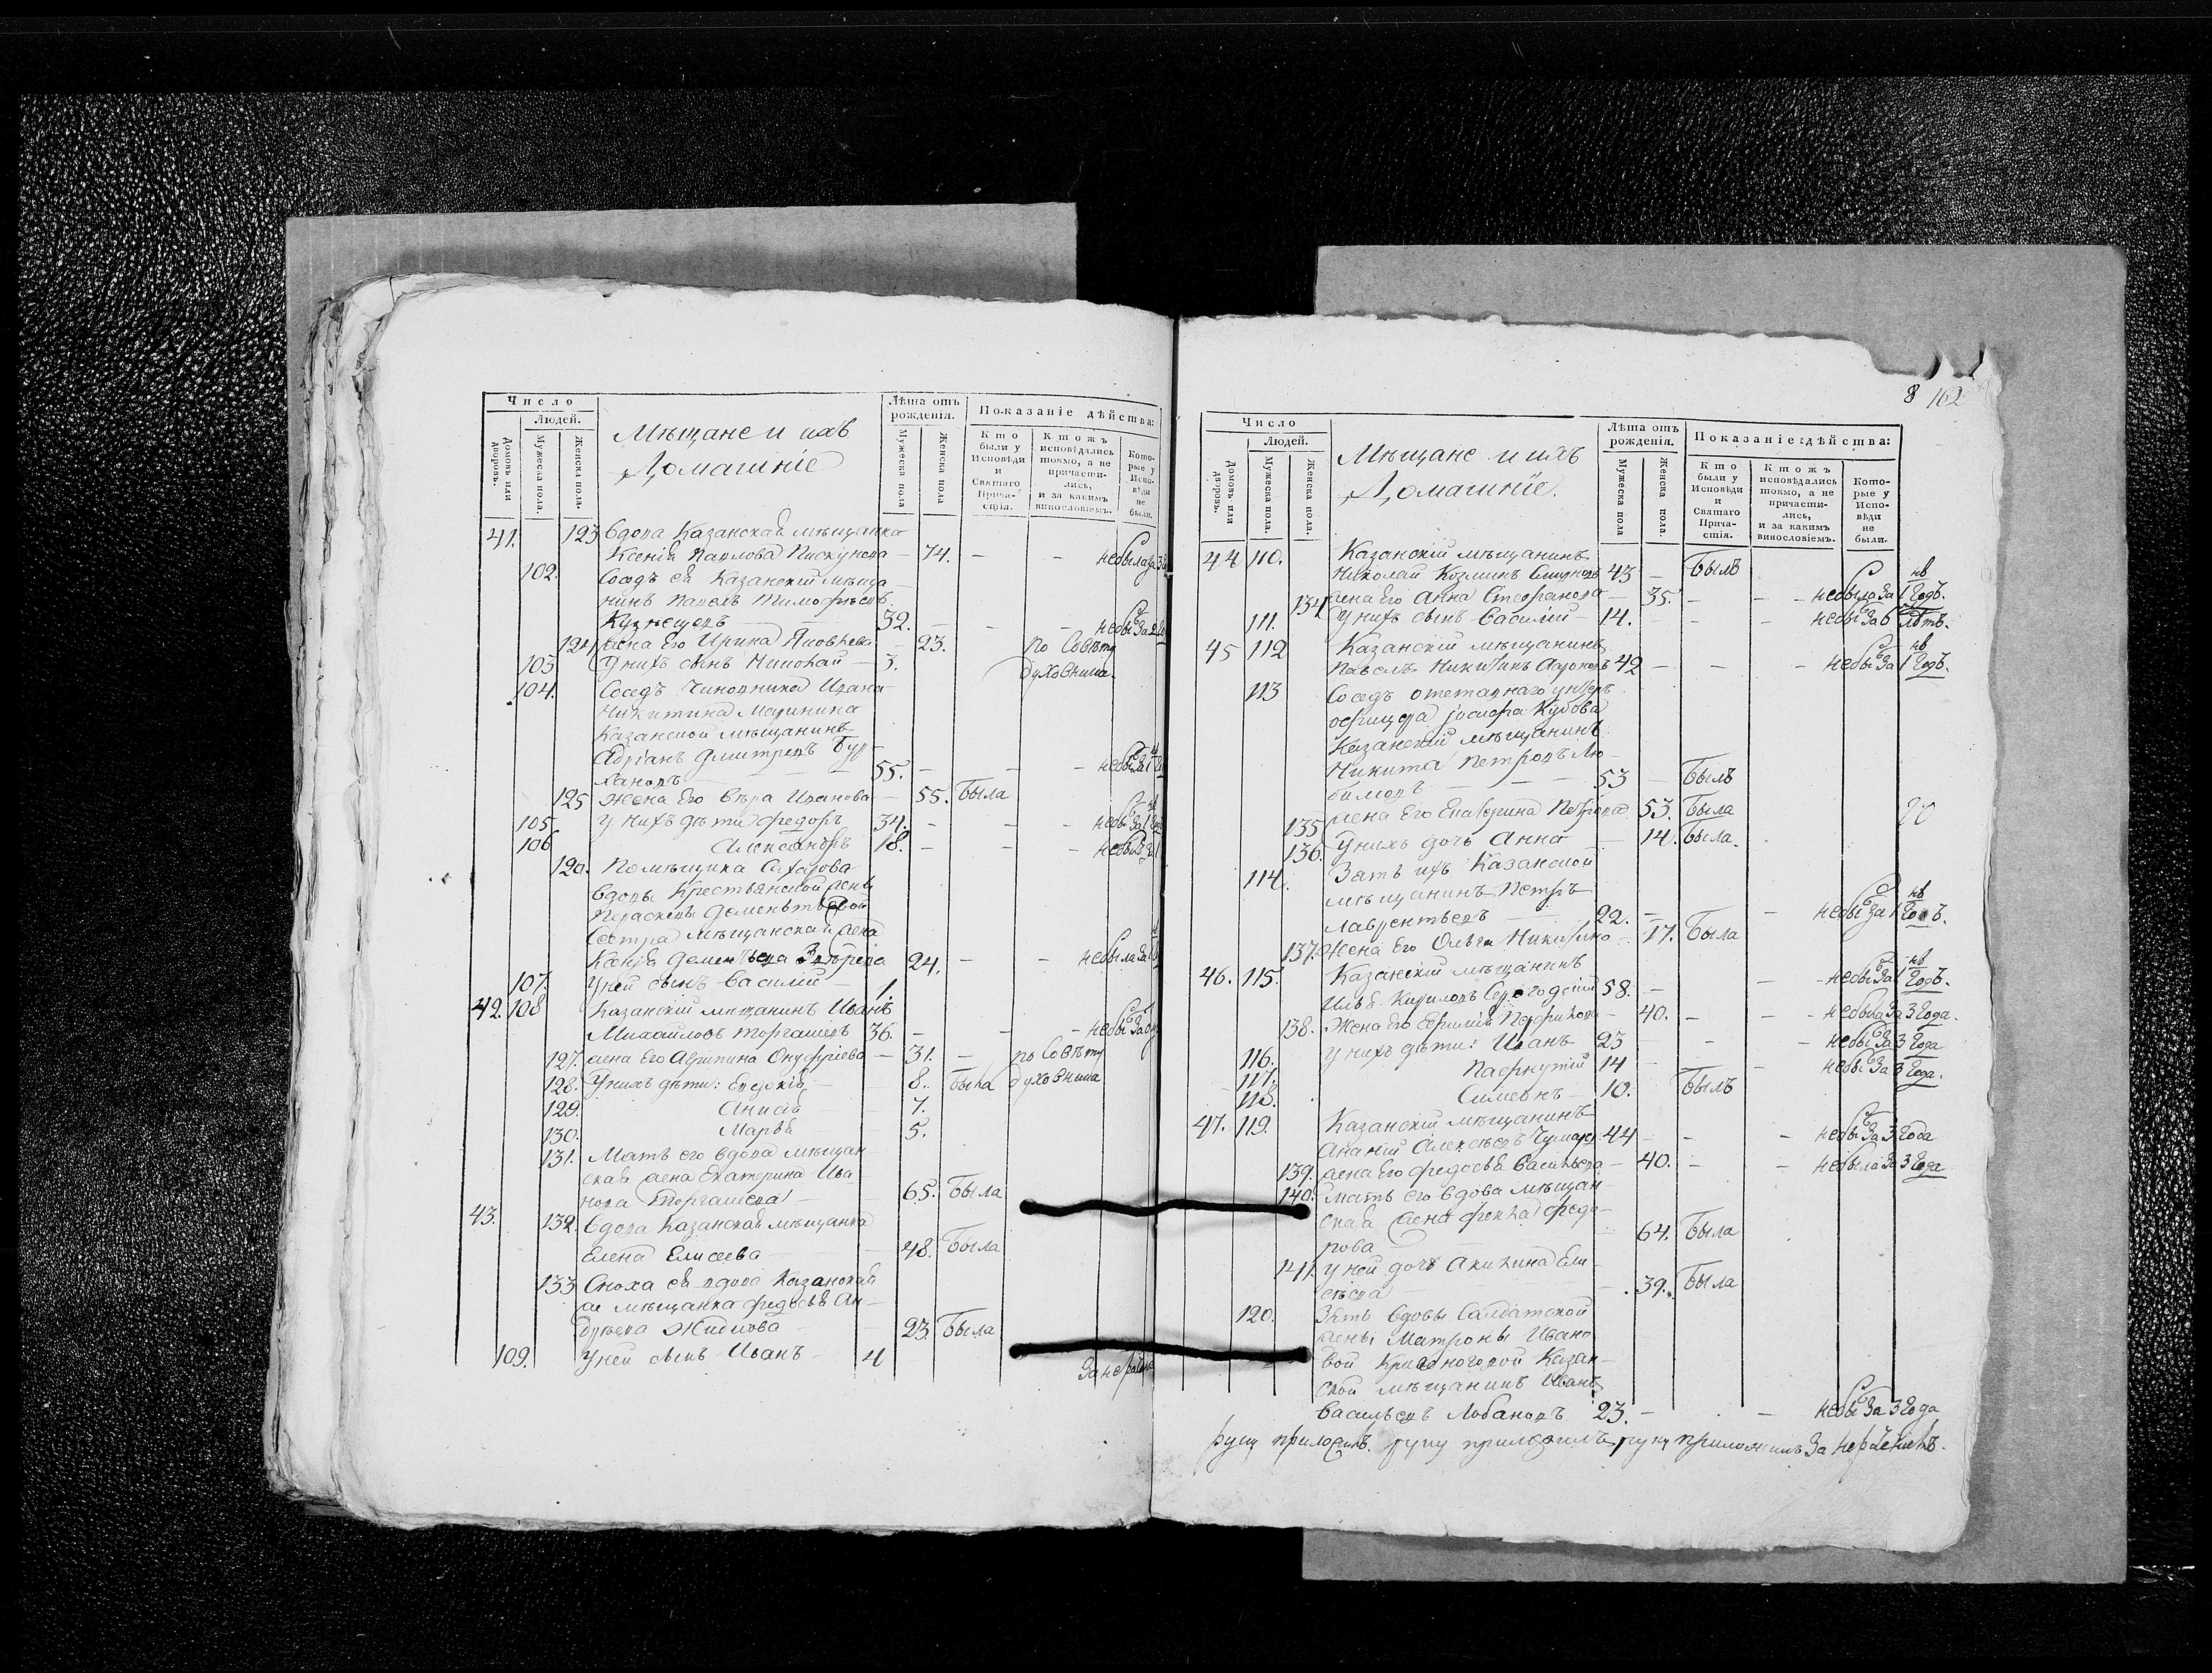 Число
Людей.
Домовъ или дворовъ.
Мужеска пола.
Женска пола.
Мѣщане и ихъ
Домашніе
Лѣта отъ рожденія.
Мужеска пола
Женска пола
Показаніе дѣйства:
Кто были у Исповѣди и Святаго Причастія.
Ктожъ исповѣдались токмо, а не причастились, и за какимъ винословіемъ.
Которые у Исповѣди не были.
41. 123 вдова Казанская мѣщанка
Ксенія Павлова Пискунова — 74. — — небыла за
102. Сосѣдъ ея Казанскій мѣща-
нинъ Павелъ Тимофѣевъ
Кузнецовъ — 32. — — — небылъ за
124 жена Его Ирина Яковлева — 23. по Совѣту
103 У нихъ сынъ Николай — 3. духовника.
104. Сосѣдъ Чиновника Ивана
Никитина
Казанской мѣщанинъ
Адріанъ Дмитревъ
55. — — — небылъ за 1
125 Жена Его Вѣра Иванова — 55. Была
105 У нихъ дѣти Федоръ 34. — — — небылъ за 1
106 Александръ 18. — — — небылъ за 1
126. Помѣщика Сахарова
вдовы Крестьянской жены
Парасковьи Дементьевой
Сестра мѣщанская жена
Ксенія Дементьева 24. — — небыла за
107. У ней сынъ Василій — 1.
42. 108 Казанскій мѣщанинъ Иванъ
Михайловъ Торгашевъ 36. — — — небылъ за
127. жена Его Агрипина Онуфріева — 31. — по Совѣту
128. У нихъ дѣти: Евдокія 8. Была духовника
129. Анисія 7.
130. Марья 5.
131. Мать его вдова мѣщан-
ская жена Екатерина Ива-
нова Торгашева — 65. Была
43. 132. Вдова Казанская мѣщанка
Елена Елисеева — 48. Была
133 Сноха ея вдова Казанская
же мѣщанка Федосья Ан-
дреева Жидкова 23. Была
109. У ней сынъ Иванъ — 4
За
8 162
Число
Людей.
Домовъ или дворовъ.
Мужеска пола.
Женска пола.
Мѣщане и ихъ
Домашніе.
Лѣта отъ рожденія.
Мужеска пола
Женска пола.
Показаніе дѣйства:
Кто были у Исповѣди и Святаго Причастія.
Ктожъ исповѣдались токмо, а не причастились, и за какимъ винословіемъ.
Которые у Исповѣди не были.
44 110. Казанскій мѣщанинъ
Николай Козминъ Смирновъ 43 — Былъ
134 жена Его Анна Стефанова — 35. — — небыла За 1 Годъ.
111. У нихъ сынъ Василій — 14. — — небылъ За 6 лѣтъ.
45 112 Казанскій мѣщанинъ
Павелъ Никитинъ 42 — — — небылъ За 1 Годъ.
113 Сосѣдъ отставнаго унтеръ
офицера Іосифа Кубова
Казанскій мѣщанинъ
Никита Петровъ Лю-
бимовъ — — — 53 — Былъ
135 жена Его Екатерина Петрова 53. Была
136. У нихъ дочь Анна — 14. Была.
114. Зать ихъ Казанской
мѣщанинъ Петръ
Лаврентьевъ — 22. — — небылъ За 1 Годъ.
137. Жена Его Ольга Никитина — 17. Была
46. 115. Казанскій мѣщанинъ
Илья Кириловъ 58. — — небылъ За 1 Годъ.
138. Жена Его Евфимія — 40. — — небыла За 3 Года.
116. У нихъ дѣти: Иванъ 25 — — небылъ За 3 Года
117. Пафнутій 14 — — небылъ За 3 Года.
118. Симеонъ — 10. Былъ
47. 119. Казанскій мѣщанинъ
Ананій Алексѣевъ 44 — — — небылъ За 3 Года
139. жена Его Федосья Васильева — 40. — — небыла За 3 Года
140. мать его вдова мѣщан-
ская жена Фекла Федо-
рова — 64. Была
141. У ней дочь Акилина Ели-
сѣева — 39. Была
120. Зять вдовы Салдатской
жены Матроны Ивано-
вой Кривоноговой Казан-
ской мѣщанинъ Иванъ
Васильевъ Лобановъ 23. — — небылъ За 3 Года
руку приложилъ. руку приложилъ руку приложилъ За